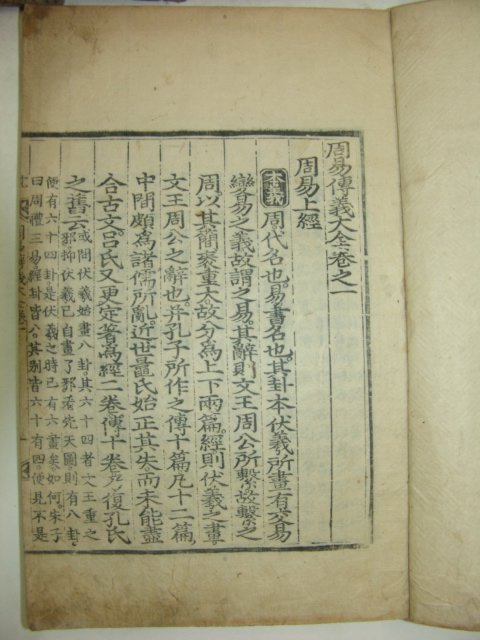 周易傳義大全卷之一
周易上經
本義 周代名也易書名也其卦本伏羲所畫有交易
變易之義故謂之易其辭則文王周公所繫故繫之
周以其簡袠重大故分爲上下兩篇經則伏羲之畫
文王周公之辭也幷孔子所作之傳十篇凡十二篇
中間頗爲諸儒所亂近世晁氏始正其失而未能盡
合古文呂氏又更定著爲經二卷傳十卷乃復孔氏
之舊云 或問伏羲始畫八卦其六十四者文王重之
邪抑伏羲已自畫了邪看先天圖則有八卦
便有六十四卦是伏羲之時已有六畫矣如何朱子
曰周禮三易經卦皆八其別皆六十有四便見不是